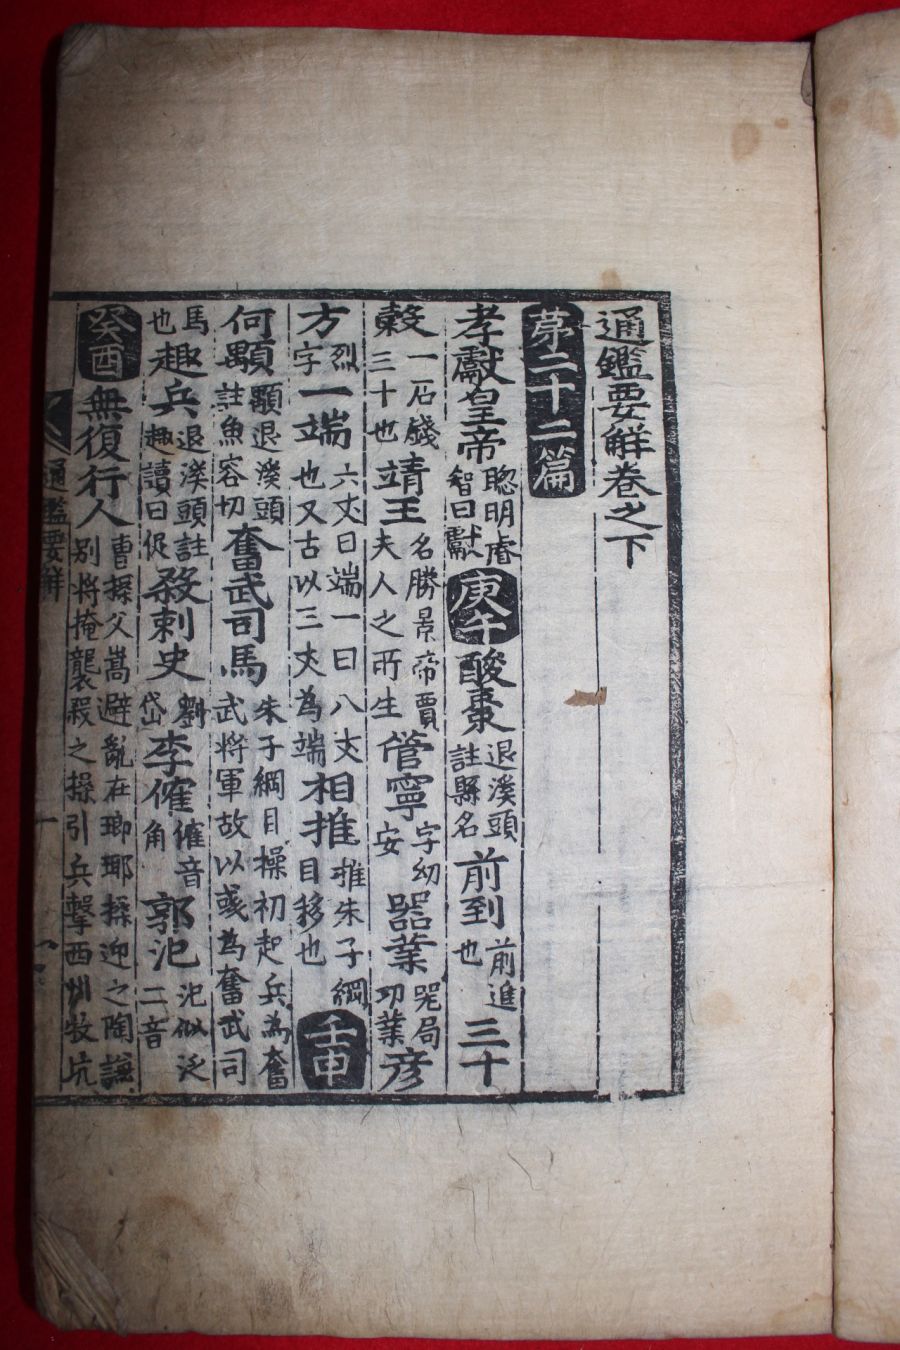 通鑑要觧卷之下
苐二十二篇
孝獻皇帝聦明睿智曰獻庚午酸棗退溪頭註縣名前到前進也三十
糓一石錢三十也靖王名勝景帝賈夫人之所生管寧字幼安器業器局功業彦
方烈字一端六丈曰端一曰八丈也又古以三丈為端相推推朱子綱目移也壬申
何顒顒退溪頭註魚容切奮武司馬朱子綱目操初起兵為奮武將軍故以彧為奮武司
馬也趣兵退溪頭註趣讀曰促殺刺史劉岱李傕傕音角郭汜汜似泛二音
癸酉無復行人曹操父嵩避亂在瑯耶操迎之陶謙別將掩襲殺之操引兵擊西圳牧坑
通鑑要觧